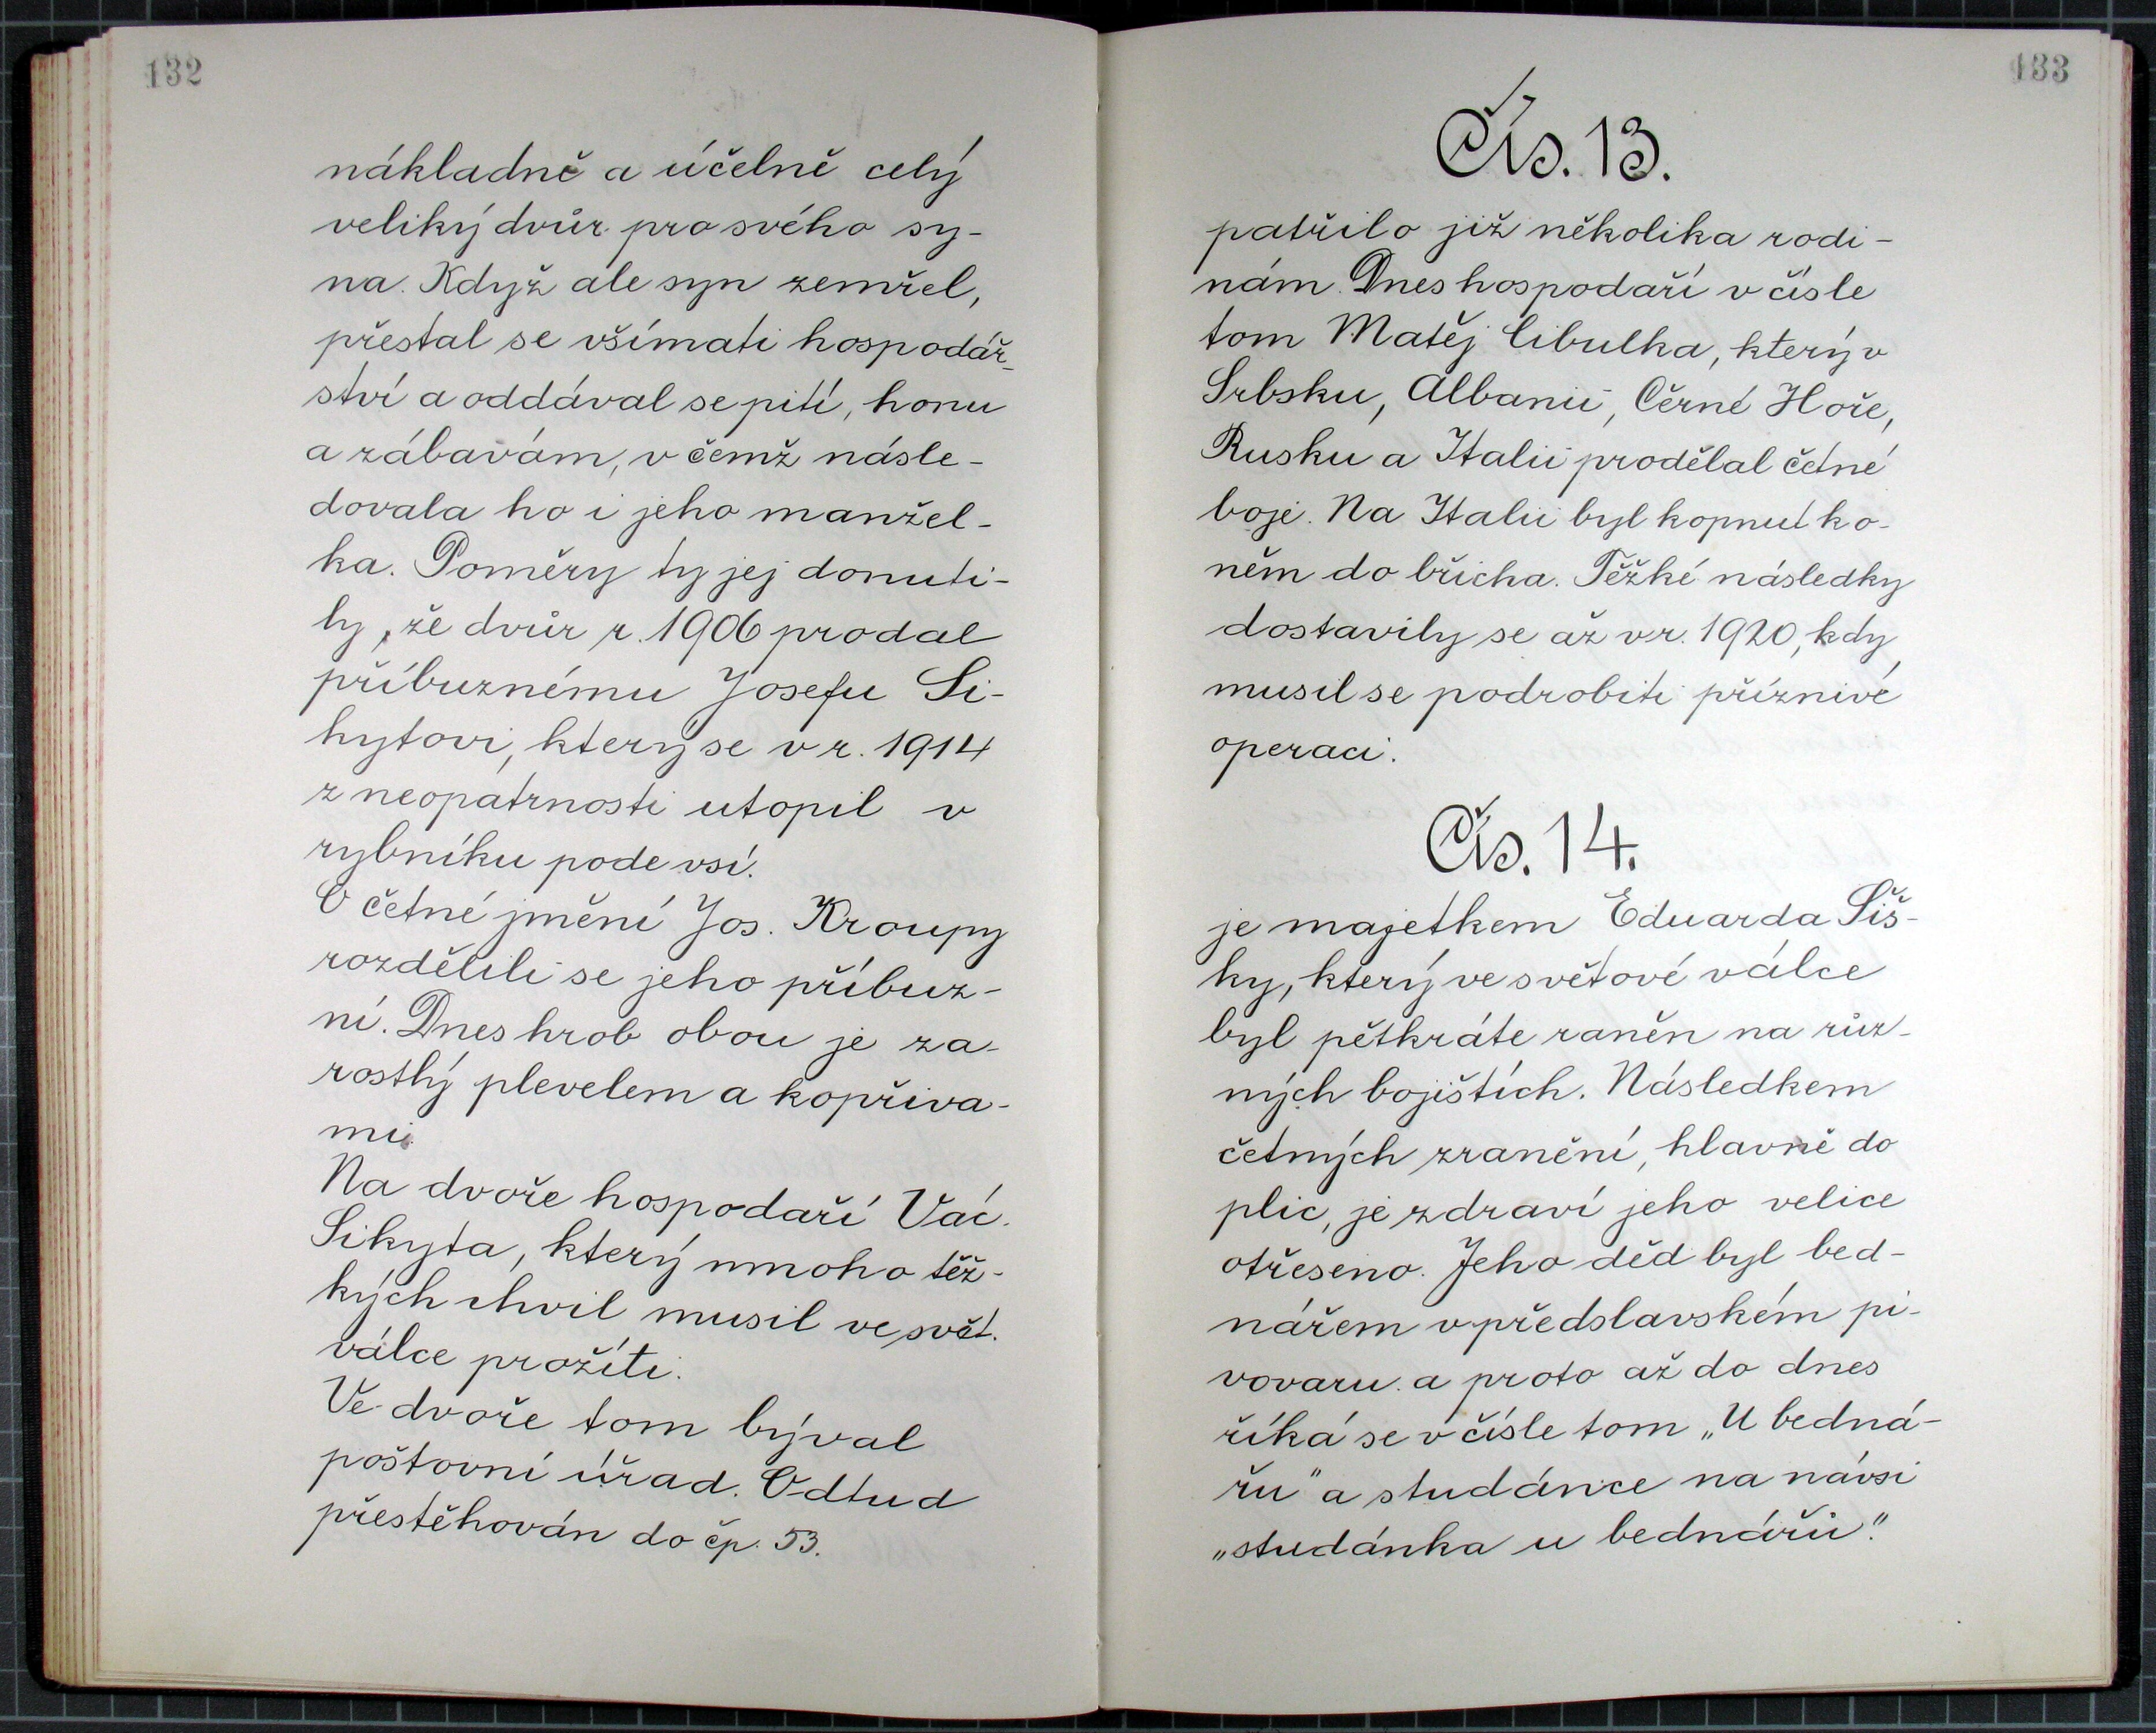 132
nákladně a účelně celý
veliký dvůr pro svého sy-
na. Když ale syn zemřel,
přestal se všímati hospodář-
ství a oddával se pití, honu
a zábavám, v čemž násle-
dovala ho i jeho manžel-
ka. Poměry ty jej donuti-
ly, že dvůr r. 1906 prodal
příbuznému Josefu Si-
kytovi, který se v r. 1914
z neopatrnosti utopil v
rybníku pode vsí.
O četné jmění Jos. Kroupy
rozdělili se jeho příbuz-
ní. Dnes hrob obou je za-
rostlý plevelem a kopřiva-
mi.
Na dvoře hospodaří Vác.
Sikyta, který mnoho těž-
kých chvil musil ve svět.
válce prožíti.
Ve dvoře tom býval
poštovní úřad. Odtud
přestěhován do čp. 53.
133
Čís. 13.
patřilo již několika rodi-
nám. Dnes hospodaří v čísle
tom Matěj Cibulka, který v
Srbsku, Albanii, Černé Hoře,
Rusku a Italii prodělal četné
boje. Na Italii byl kopnut ko-
něm do břicha. Těžké následky
dostavily se až v r. 1920, kdy
musil se podrobiti příznivé
operaci.
Čís. 14.
je majetkem Eduarda Šiš-
ky, který ve světové válce
byl pětkráte raněn na růz-
ných bojištích. Následkem
četných zranění, hlavně do
plic, je zdraví jeho velice
otřeseno. Jeho děd byl bed-
nářem v předslavském pi-
vovaru a proto až do dnes
říká se v čísle tom „U bedná-
řů" a studánce na návsi
„studánka u bednářů."